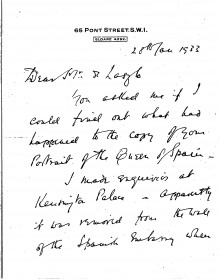 65 PONT STREET. S.W.1.
SLOANE
28th Jan 1933
Dear Mr. de Laszlo
You asked me if I
could find out what had
happened to the copy of your
Portrait of the Queen of Spain -
I made enquiries at
Kensington Palace - apparently
it was removed from the walls
of the Spanish Embassy when